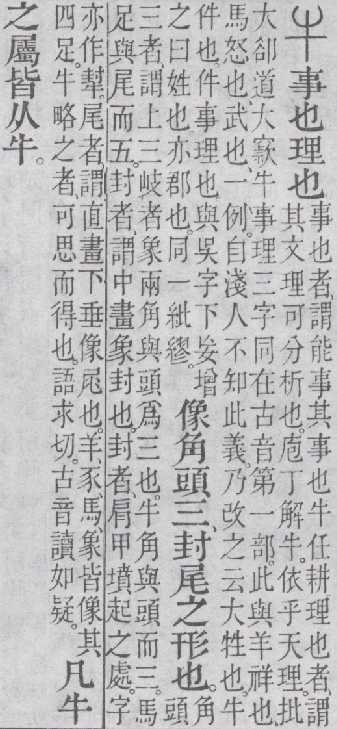 牛事也理也事也者、謂能事其事也。牛任耕。理也者、謂
其文理可分析也。庖丁解牛。依乎天理。批
大郤。道大窾。牛事理三字同在古音第一部。此與羊祥也、
馬怒也武也、一例。自淺人不知此義。乃改之云大牲也。牛
件也。件事理也。與吳字下妄增
之曰姓也亦郡也。同一紕繆。
像角頭三、封尾之形也。角
頭
三者、謂上三岐者象兩角與頭爲三也。牛角與頭而三。馬
足與尾而五。封者、謂中畫象封也。封者、肩甲墳起之處。字
亦作犎。尾者、謂直畫下垂像尾也。羊、豕、馬、象皆像其
四足。牛略之者、可思而得也。語求切。古音讀如疑。
凡牛
之屬皆从牛。